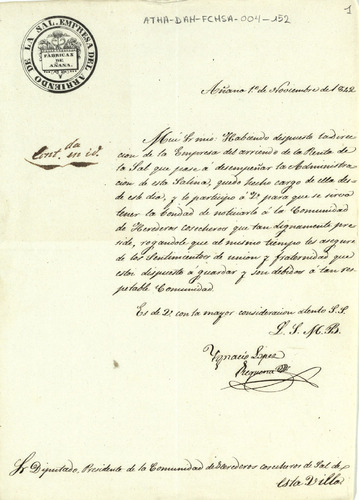 ATHA-DAH-FCMSA-004-152
1
EMPRESA DEL ARRIENDO DE LA SAL.
FÁBRICAS
DE
AÑANA.
Añana 1º de Noviembre de 1842
Contda en id.
Mui Sr mio: Habiendo dispuesto la direc
cion de la Empresa del arriendo de la Renta de
la Sal que pase á desempeñar la Administra
cion de esta Salina, quedo hecho cargo de ella des-
de este dia, y lo participo á Vd para que se sirva
tener la bondad de noticiarlo á la Comunidad
de Herederos cosecheros que tan dignamente pre
side, rogandole que al mismo tiempo les asegure
de los sentimientos de union y fraternidad que
estoi dispuesto a guardar y son debidas á tan res
petable Comunidad.
Es de Vd con la mayor consideracion atento S. S.
Q. S. M. B.
Ygnacio Lopez
Requena
Sr Diputado, Presidente de la Comunidad de Herederos cosecheros de Sal de
esta Villa